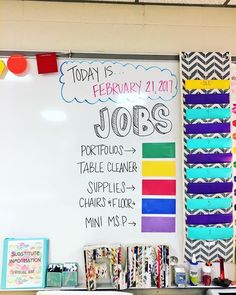 TODAY IS...
FEBRUARY 21, 2017
JOBS
PORTFOLIOS →
TABLE CLEANER
SUPPLIES →
CHAIRS & FLOOR →
MINI M.S.P. →
SUBSTITUTE
INFORMATION